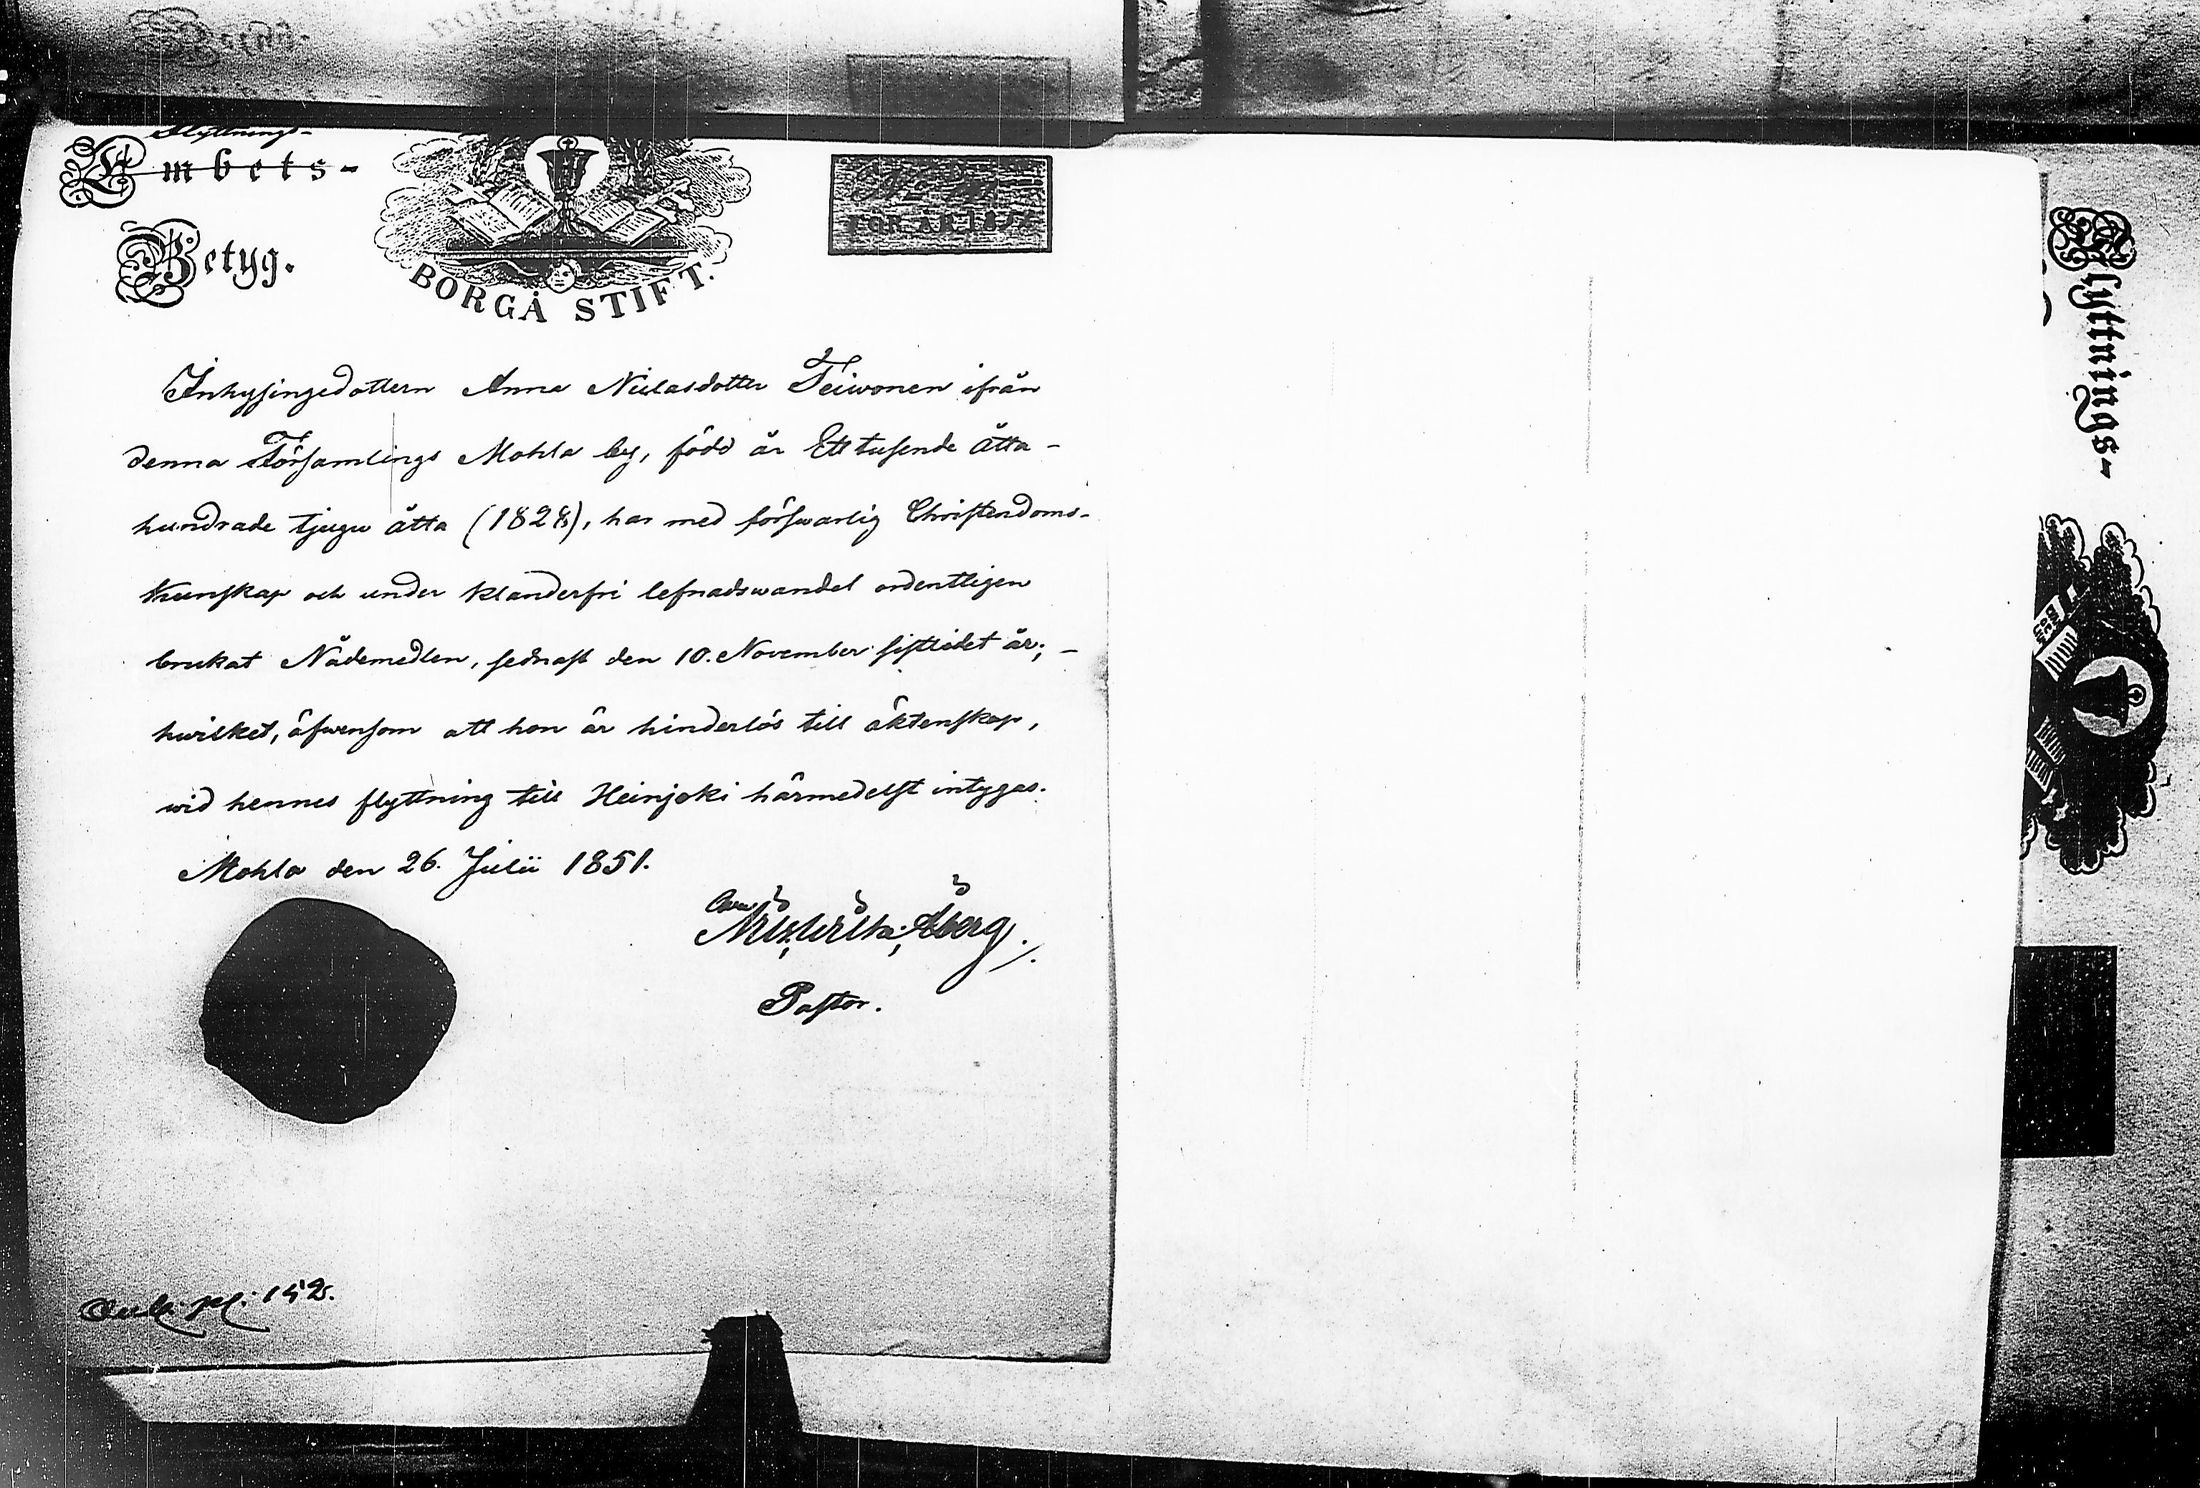 Flyttnings-
Embets-
Betyg.
BORGÅ STIFT.
FÖR ÅR 185
Inhysingedottern Anna Niclasdotter Teiwonen ifrån
denna Församlings Mohla by, född år Ett tusende åtta-
hundrade tjugu åtta (1828), har med förswarlig Christendoms-
kunskap och under klanderfri lefnadswandel ordentligen
brukat Nådemedlen, sednast den 10. November sistlidet år; -
hwilket, äfwensom att hon är hinderlös till äktenskap,
wid hennes flyttning till Heinjoki härmedelst intygas.
Mohla den 26. Julii 1851.
Åberg.
Pastor.
pag: 152.
Flyttnings-